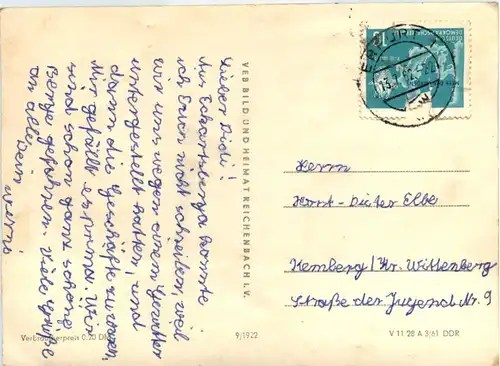 Lieber Dodi!
Aus Eckartsberga konnte
ich Euch nicht schreiben, weil
wir uns wegen einem Gewitter
untergestellt hatten, und
dann die Geschäfte zu waren.
Mir gefällt es prima. Wir
sind schon ganz schöne
Berge gefahren. Viele Grüße
an alle Dein
VEB BILD UND HEIMAT REICHENBACH I. V.
DEUTSCHE
DEMOKRATISCHE
Herrn
Horst-Dieter Elbe
Kemberg/Kr. Wittenberg
Straße der Jugend Nr. 9
Verbraucherpreis 0,20 DM
9/1922
V 11 28 A 3/61 DDR